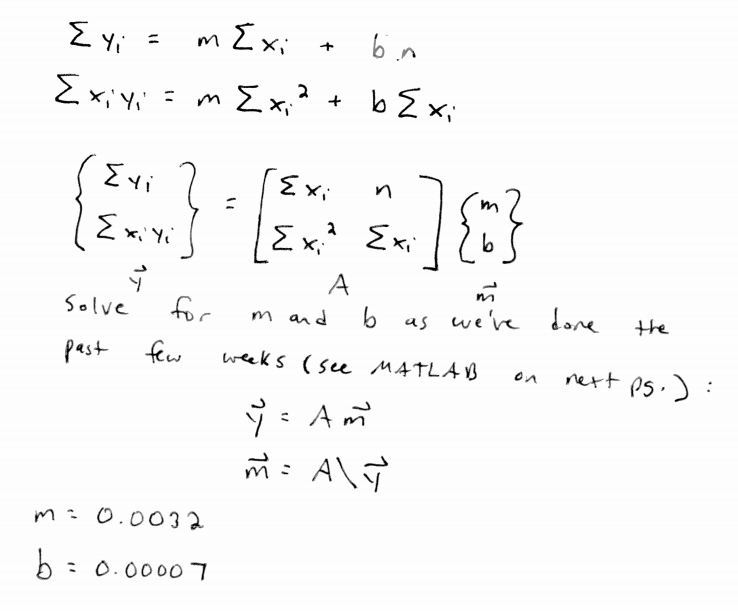 Σ yᵢ = m Σ xᵢ + b n
Σ xᵢ yᵢ = m Σ xᵢ² + b Σ xᵢ
{ Σ yᵢ } = [ Σ xᵢ n ] { m }
{ Σ xᵢ yᵢ } [ Σ xᵢ² Σ xᵢ ] { b }
y⃗ A m⃗
Solve for m and b as we've done the
past few weeks (see MATLAB on next pg.) :
y⃗ = A m⃗
m⃗ = A\y⃗
m = 0.0032
b = 0.00007